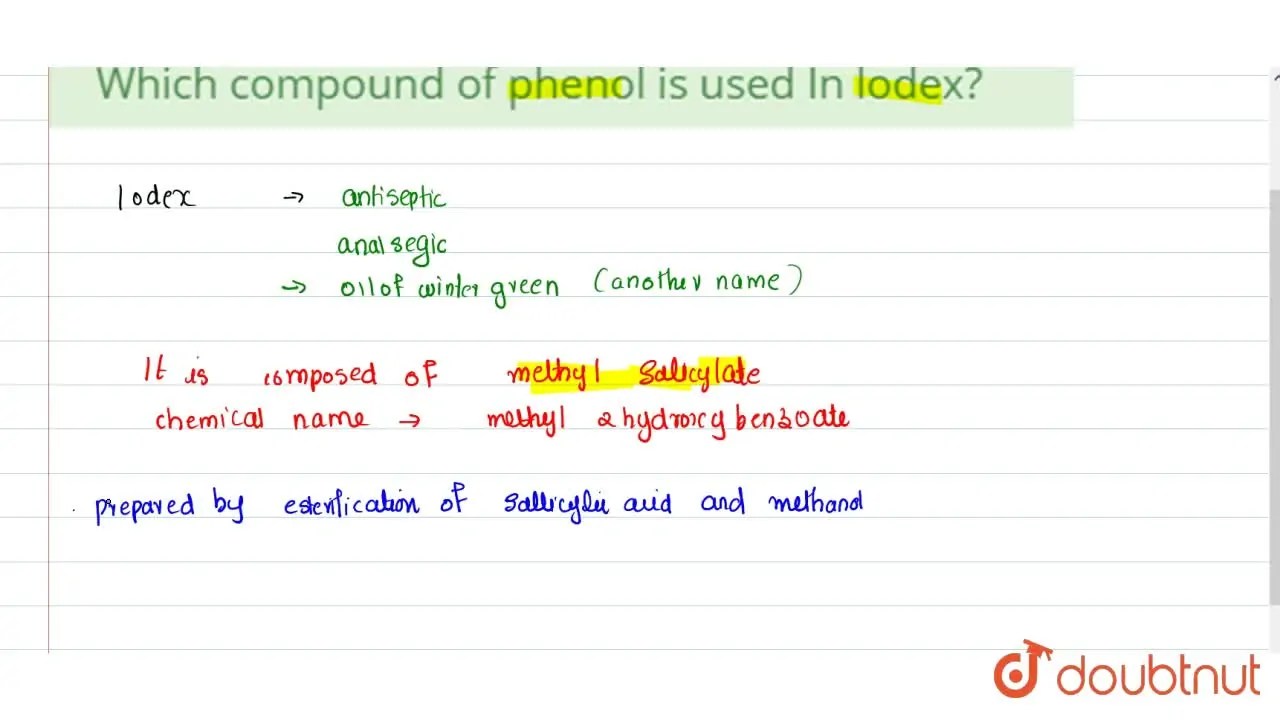 Which compound of phenol is used In Iodex?
Iodex → antiseptic
analsegic
→ oil of winter green (another name)
It is composed of methyl salicylate
chemical name → methyl 2 hydroxy benzoate
prepared by esterification of sallicylic acid and methanol
doubtnut